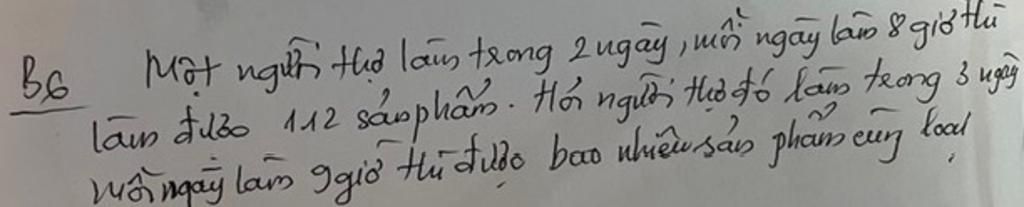 B6 Một người thợ làm trong 2 ngày, mỗi ngày làm 8 giờ thì
làm được 112 sản phẩm. Hỏi người thợ đó làm trong 3 ngày
mỗi ngày làm 9 giờ thì được bao nhiêu sản phẩm cùng loại